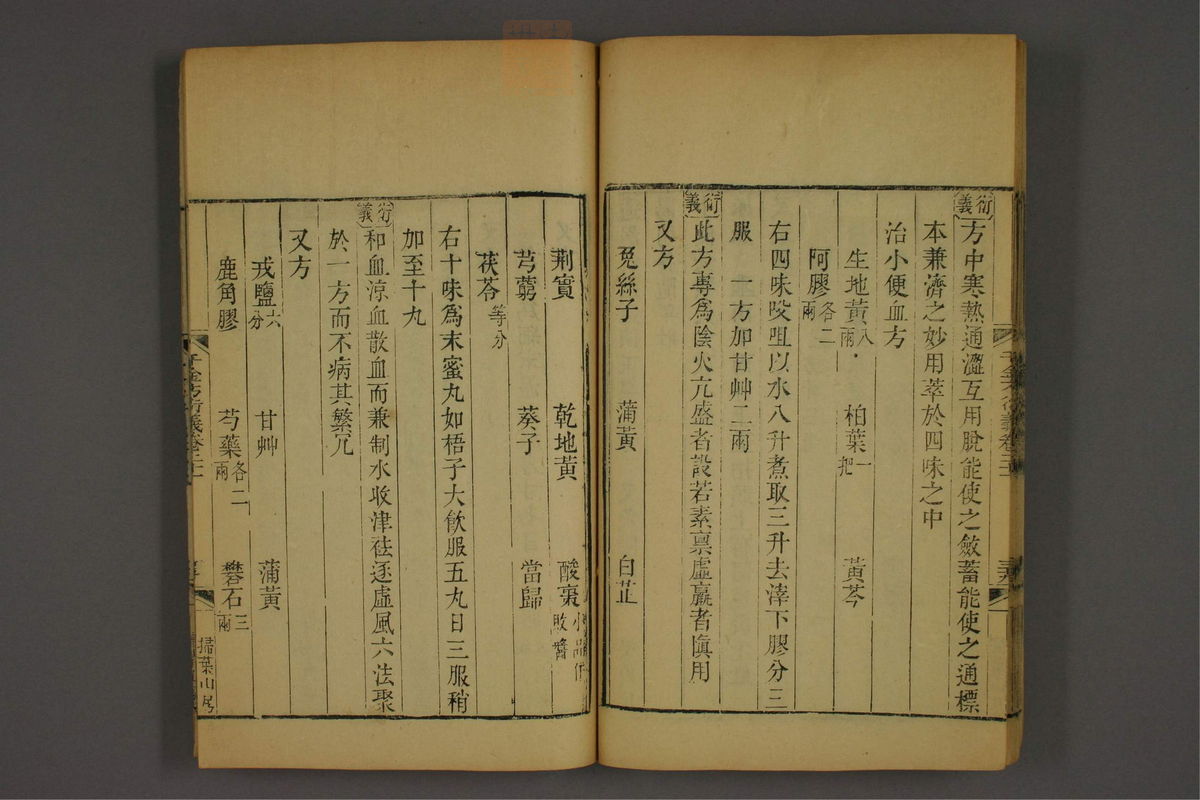 衍義方中寒熱通澀互用脫能使之斂蓄能使之通標
本兼濟之妙用萃於四味之中
治小便血方
生地黃八兩 柏葉一把 黃芩
阿膠各二兩
右四味㕮咀以水八升煮取三升去滓下膠分三
服 一方加甘艸二兩
衍義此方專爲陰火亢盛者設若素禀虛羸者愼用
又方
兎絲子 蒲黃 白芷
荆實 乾地黃 酸棗小品作敗醬
芎藭 葵子 當歸
茯苓等分
右十味爲末蜜丸如梧子大飮服五丸日三服稍
加至十丸
衍義和血涼血散血而兼制水收津祛逐虛風六法聚
於一方而不病其繁冗
又方
戎鹽六分 甘艸 蒲黃
鹿角膠 芍藥各二兩 礬石三兩
千金方衍義卷二十一
掃葉山房